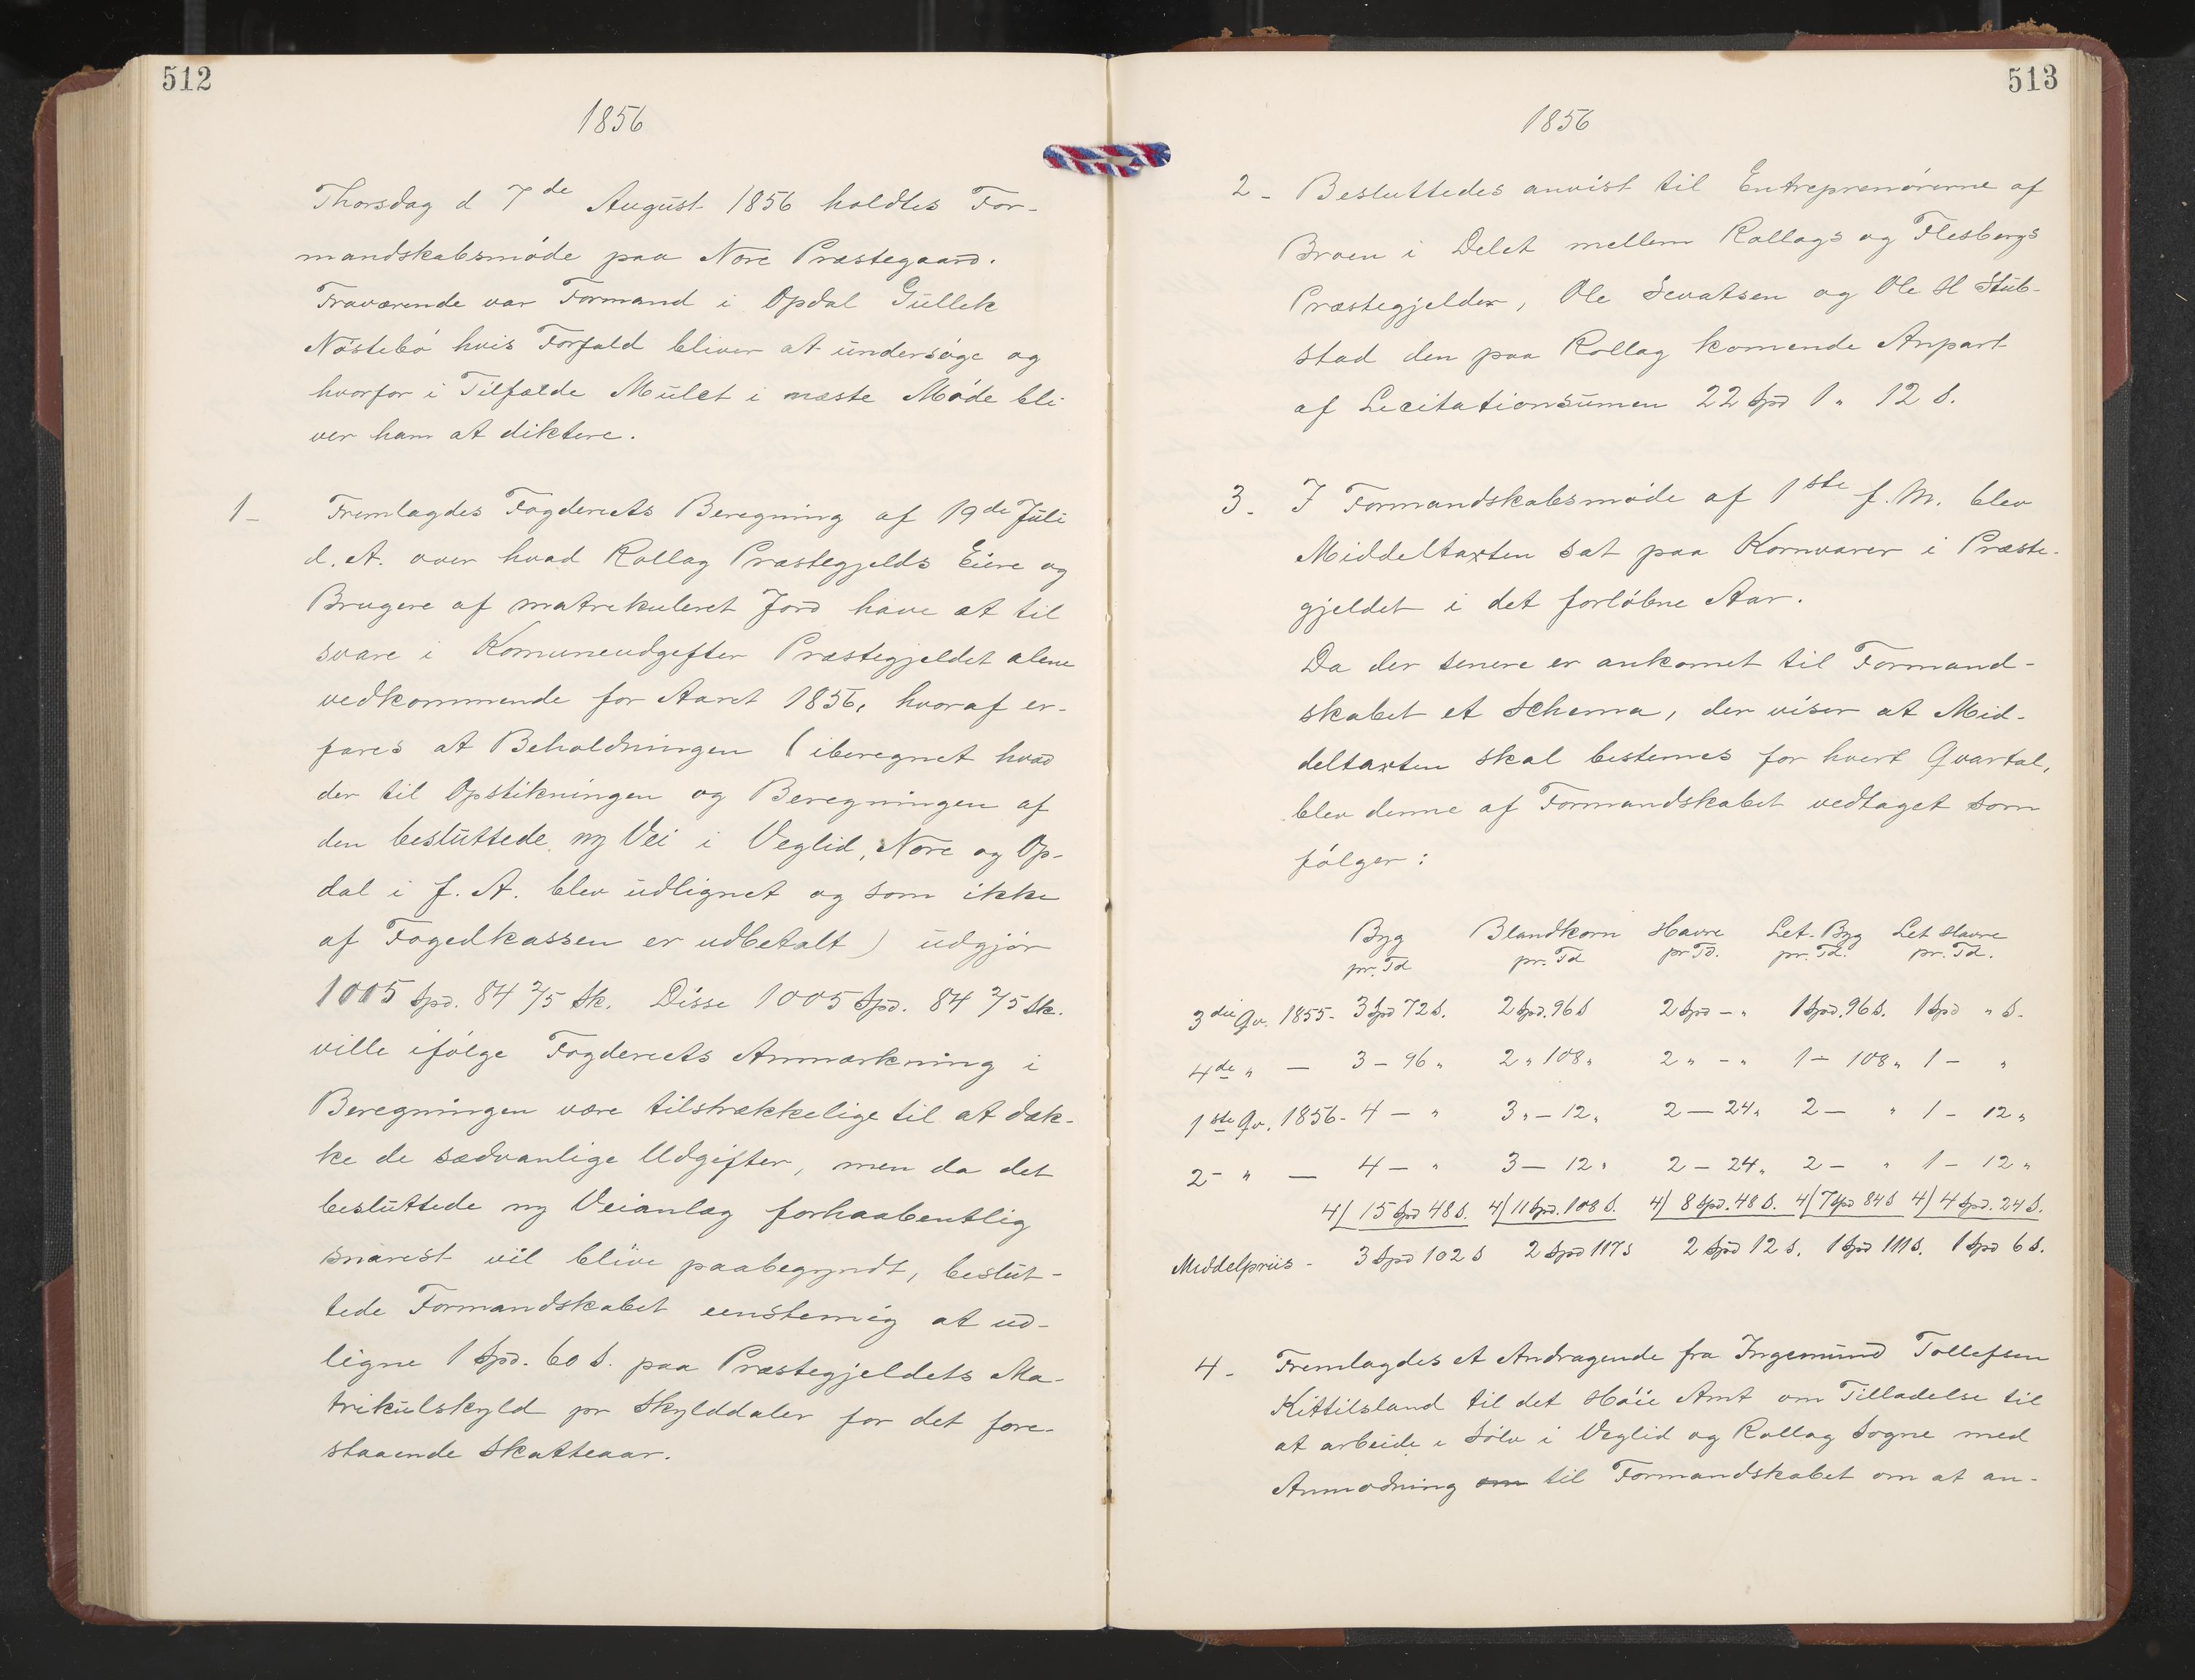 512
1856
Thorsdag d 7de August 1856 holdtes For-
mandskabsmøde paa Nore Præstegaard.
Fraværende var Formand i Opdal Gullek
Nöstebö hvis Forfald bliver at undersøge og
hvorfor i Tilfælde Mulct i næste Møde bli
ver ham at diktere.
1- Fremlagdes Fogderiets Beregning af 19de Juli
d. A. over hvad Rollag Præstegjelds Eiere og
Brugere af matrekuleret Jord have at til
svare i Komuneudgifter Præstegjeldet alene
vedkommende for Aaret 1856, hvoraf er-
fares at Beholdningen (iberegnet hvad
der til Opstikningen og Beregningen af
den besluttede ny Vei i Veglid, Nore og Op-
dal i f. A. blev udlignet og som ikke
af Fogedkassen er udbetalt) udgjør
1005 Spd. 84 2/5 Sk. Disse 1005 Spd. 84 2/5 Sk.
ville ifølge Fogderiets Anmærkning i
Beregningen være tilstrækkelige til at dæk-
ke de sædvanlige Udgifter, men da det
besluttede ny Veianlæg forhaabentlig
snarest vil blive paabegyndt, beslut-
tede Formandskabet eenstemig at ud-
ligne 1 Spd. 60 S. paa Præstegjeldets Ma-
trikulskyld pr Skylddaler for det fore-
staaende Skatteaar.
513
1856
2- Besluttedes anvist til Entreprenørerne af
Broen i Delet mellem Rollags og Flesbergs
Præstegjelder, Ole Sevatsen og Ole H Stub-
stad den paa Rollag komende Anpart
af Licitationsumen 22 Spd 1 " 12 S.
3- I Formandskabsmøde af 1ste f. M. blev
Middeltaxten sat paa Kornvarer i Præste-
gjeldet i det forløbne Aar.
Da der senere er ankomet til Formand-
skabet et Schema, der viser at Mid-
deltaxten skal bestemes for hvert Qvartal,
blev denne af Formandskabet vedtaget som
følger:
Byg Blandkorn Havre Let-Byg Let Havre
pr. Td pr. Td pr Td. pr. Td. pr. Td.
3die Qv. 1855- 3 Spd 72 S. 2 Spd. 96 S 2 Spd - " 1 Spd. 96 S. 1 Spd " S.
4de " — 3 - 96 " 2 " 108 " 2 " - " 1 - 108 " 1 - "
1ste Qv. 1856- 4 — " 3 " - 12 " 2 — 24 " 2 — " 1 - 12 "
2- " — 4 — " 3 — 12 " 2 - 24 " 2 — " 1 - 12 "
4/ 15 Spd 48 S. 4/ 11 Spd. 108 S. 4/ 8 Spd. 48 S. 4/ 7 Spd 84 S 4/ 4 Spd. 24 S.
Middelpriis - 3 Spd 102 S 2 Spd 117 S 2 Spd 12 S. 1 Spd 111 S. 1 Spd 6 S.
4- Fremlagdes et Andragende fra Ingemund Tollefsen
Kittilsland til det Høie Amt om Tilladelse til
at arbeide i Sölv i Veglid og Rollag Sogne med
Anmodning om til Formandskabet om at an-